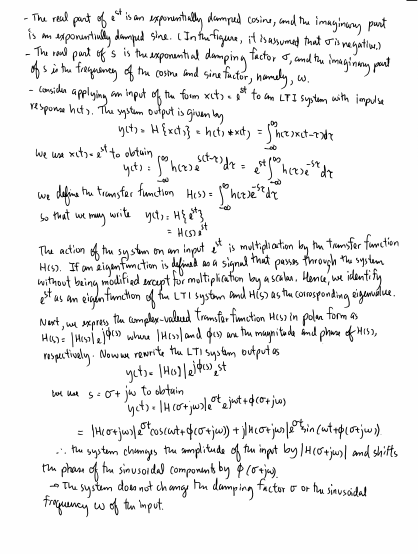 - The real part of e^st is an exponentially damped cosine, and the imaginary part
is an exponentially damped sine. (In the figure, it is assumed that σ is negative.)
- The real part of s is the exponential damping factor σ, and the imaginary part
of s is the frequency of the cosine and sine factor, namely, ω.
- Consider applying an input of the form x(t) = e^st to an LTI system with impulse
response h(t). The system output is given by
y(t) = H{x(t)} = h(t) * x(t) = ∫_{-∞}^{∞} h(τ)x(t-τ)dτ
We use x(t) = e^st to obtain
y(t) = ∫_{-∞}^{∞} h(τ)e^{s(t-τ)}dτ = e^st ∫_{-∞}^{∞} h(τ)e^{-sτ}dτ
We define the transfer function H(s) = ∫_{-∞}^{∞} h(τ)e^{-sτ}dτ
so that we may write y(t) = H{e^st}
= H(s)e^st
The action of the system on an input e^st is multiplication by the transfer function
H(s). If an eigenfunction is defined as a signal that passes through the system
without being modified except for multiplication by a scalar. Hence, we identify
e^st as an eigenfunction of the LTI system and H(s) as the corresponding eigenvalue.
Next, we express the complex-valued transfer function H(s) in polar form as
H(s) = |H(s)|e^{jϕ(s)} where |H(s)| and ϕ(s) are the magnitude and phase of H(s),
respectively. Now we rewrite the LTI system output as
y(t) = |H(s)|e^{jϕ(s)}e^st
we use s = σ + jω to obtain
y(t) = |H(σ+jω)|e^{σt}e^{jωt+ϕ(σ+jω)}
= |H(σ+jω)|e^{σt}cos(ωt+ϕ(σ+jω)) + j|H(σ+jω)|e^{σt}sin(ωt+ϕ(σ+jω))
∴ the system changes the amplitude of the input by |H(σ+jω)| and shifts
the phase of the sinusoidal components by ϕ(σ+jω).
→ The system does not change the damping factor σ or the sinusoidal
frequency ω of the input.